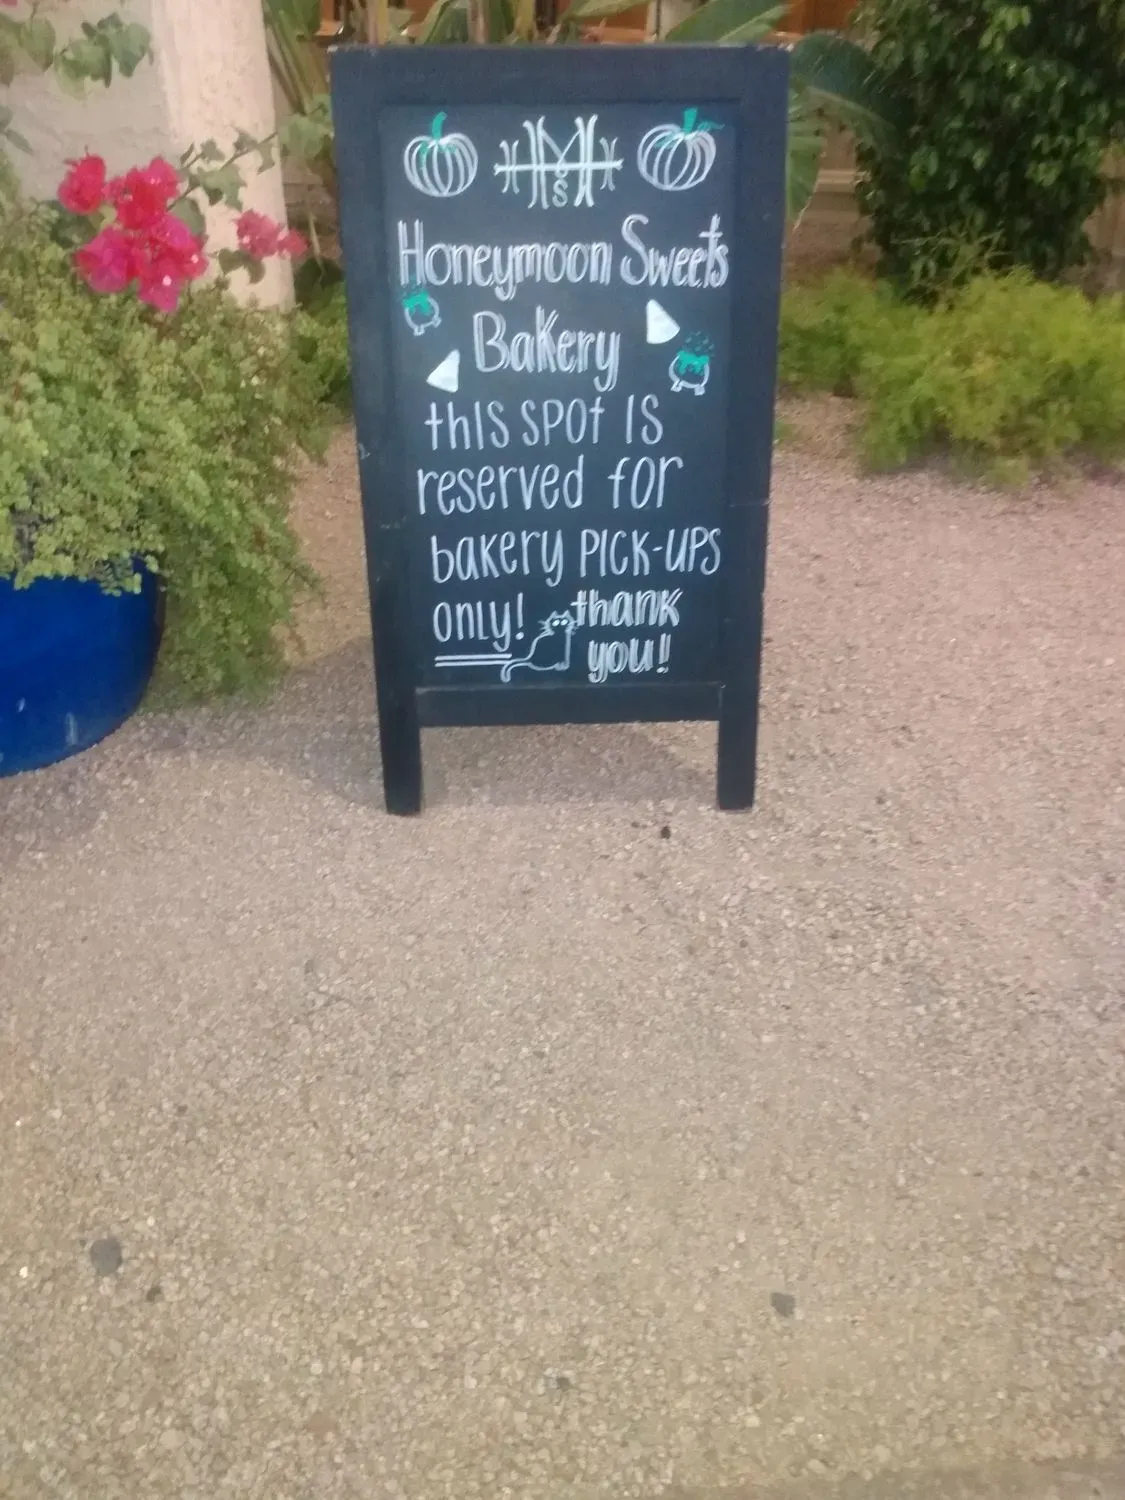 HMH
S
Honeymoon Sweets
Bakery
this spot is
reserved for
bakery pick-ups
only! thank
you!!